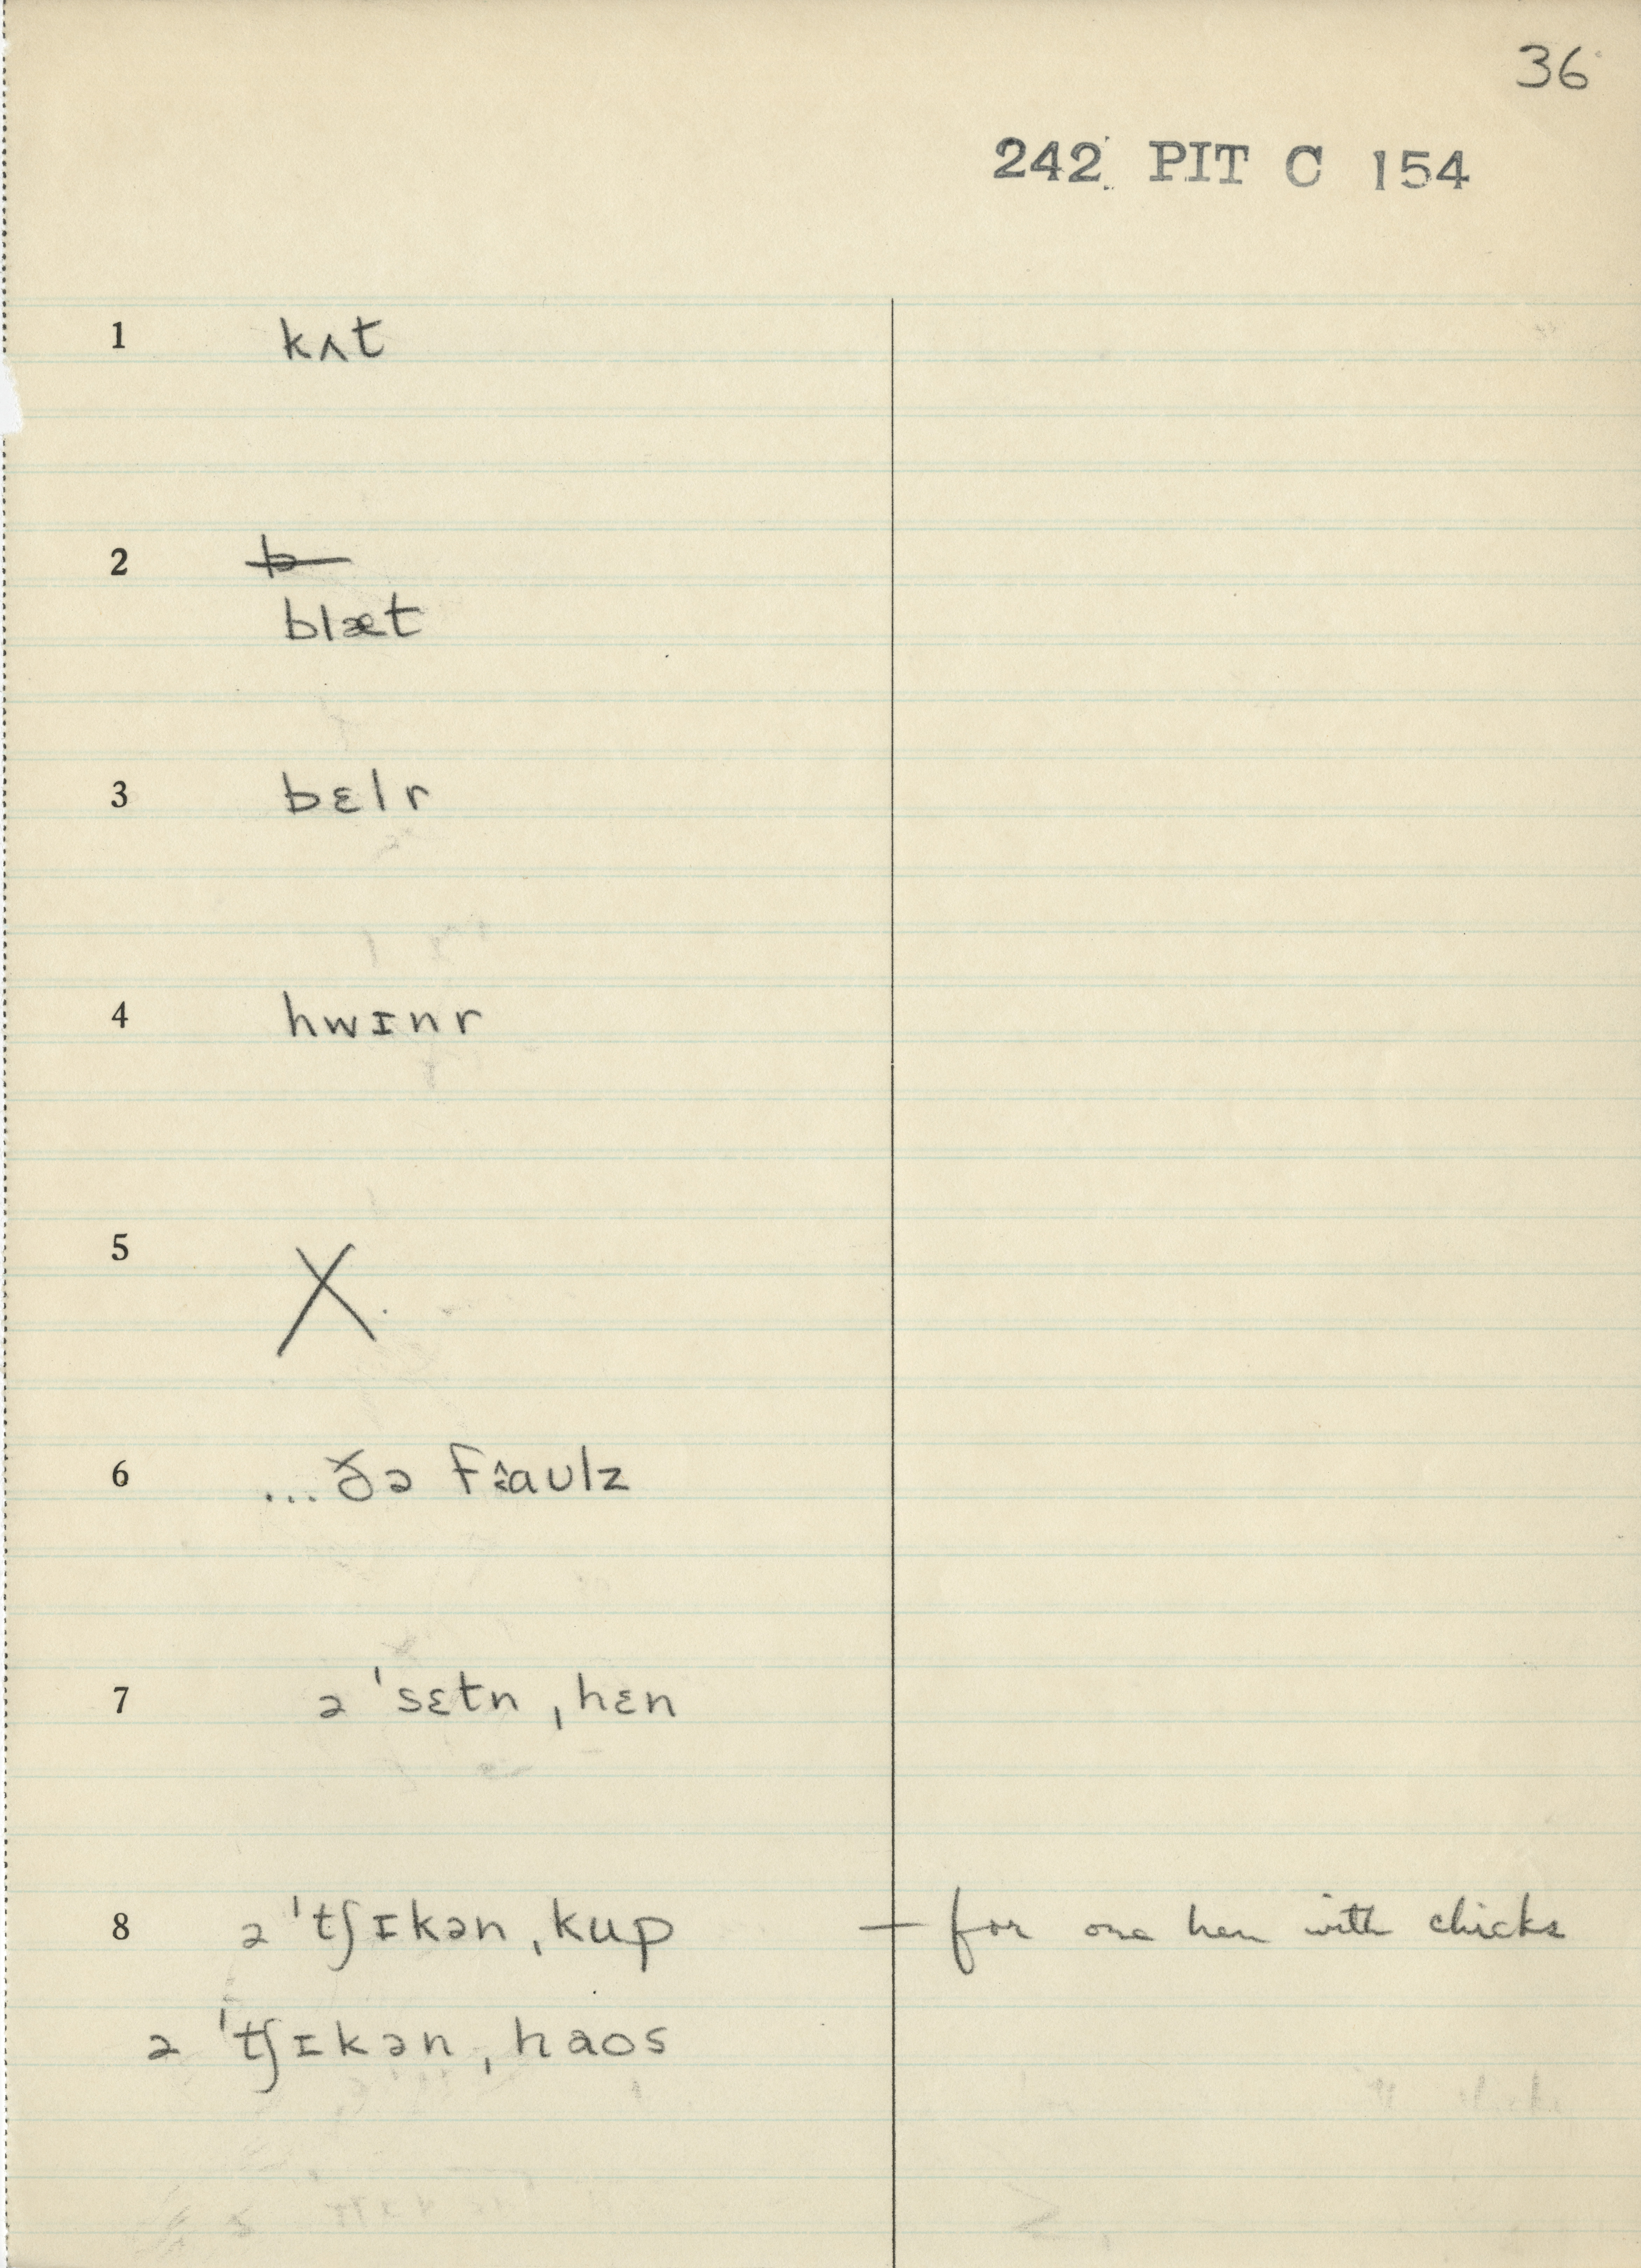 36
242 PIT C 154
1 kʌt
2 b
blæt
3 bɛlr
4 hwɪnr
5 X
6 ...ðə fɛ̂aʊlz
7 ə ˈsɛtn ˌhɛn
8 ə ˈtʃɪkən ˌkup — for one hen with chicks
ə ˈtʃɪkən ˌhaos